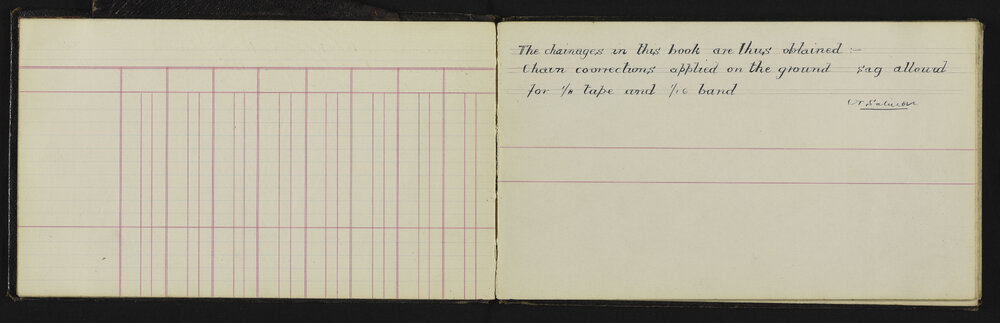 The chainages in this book are thus obtained :-
Chain coorrections applied on the ground sag allowed
for 1/8 tape and 1/16 band